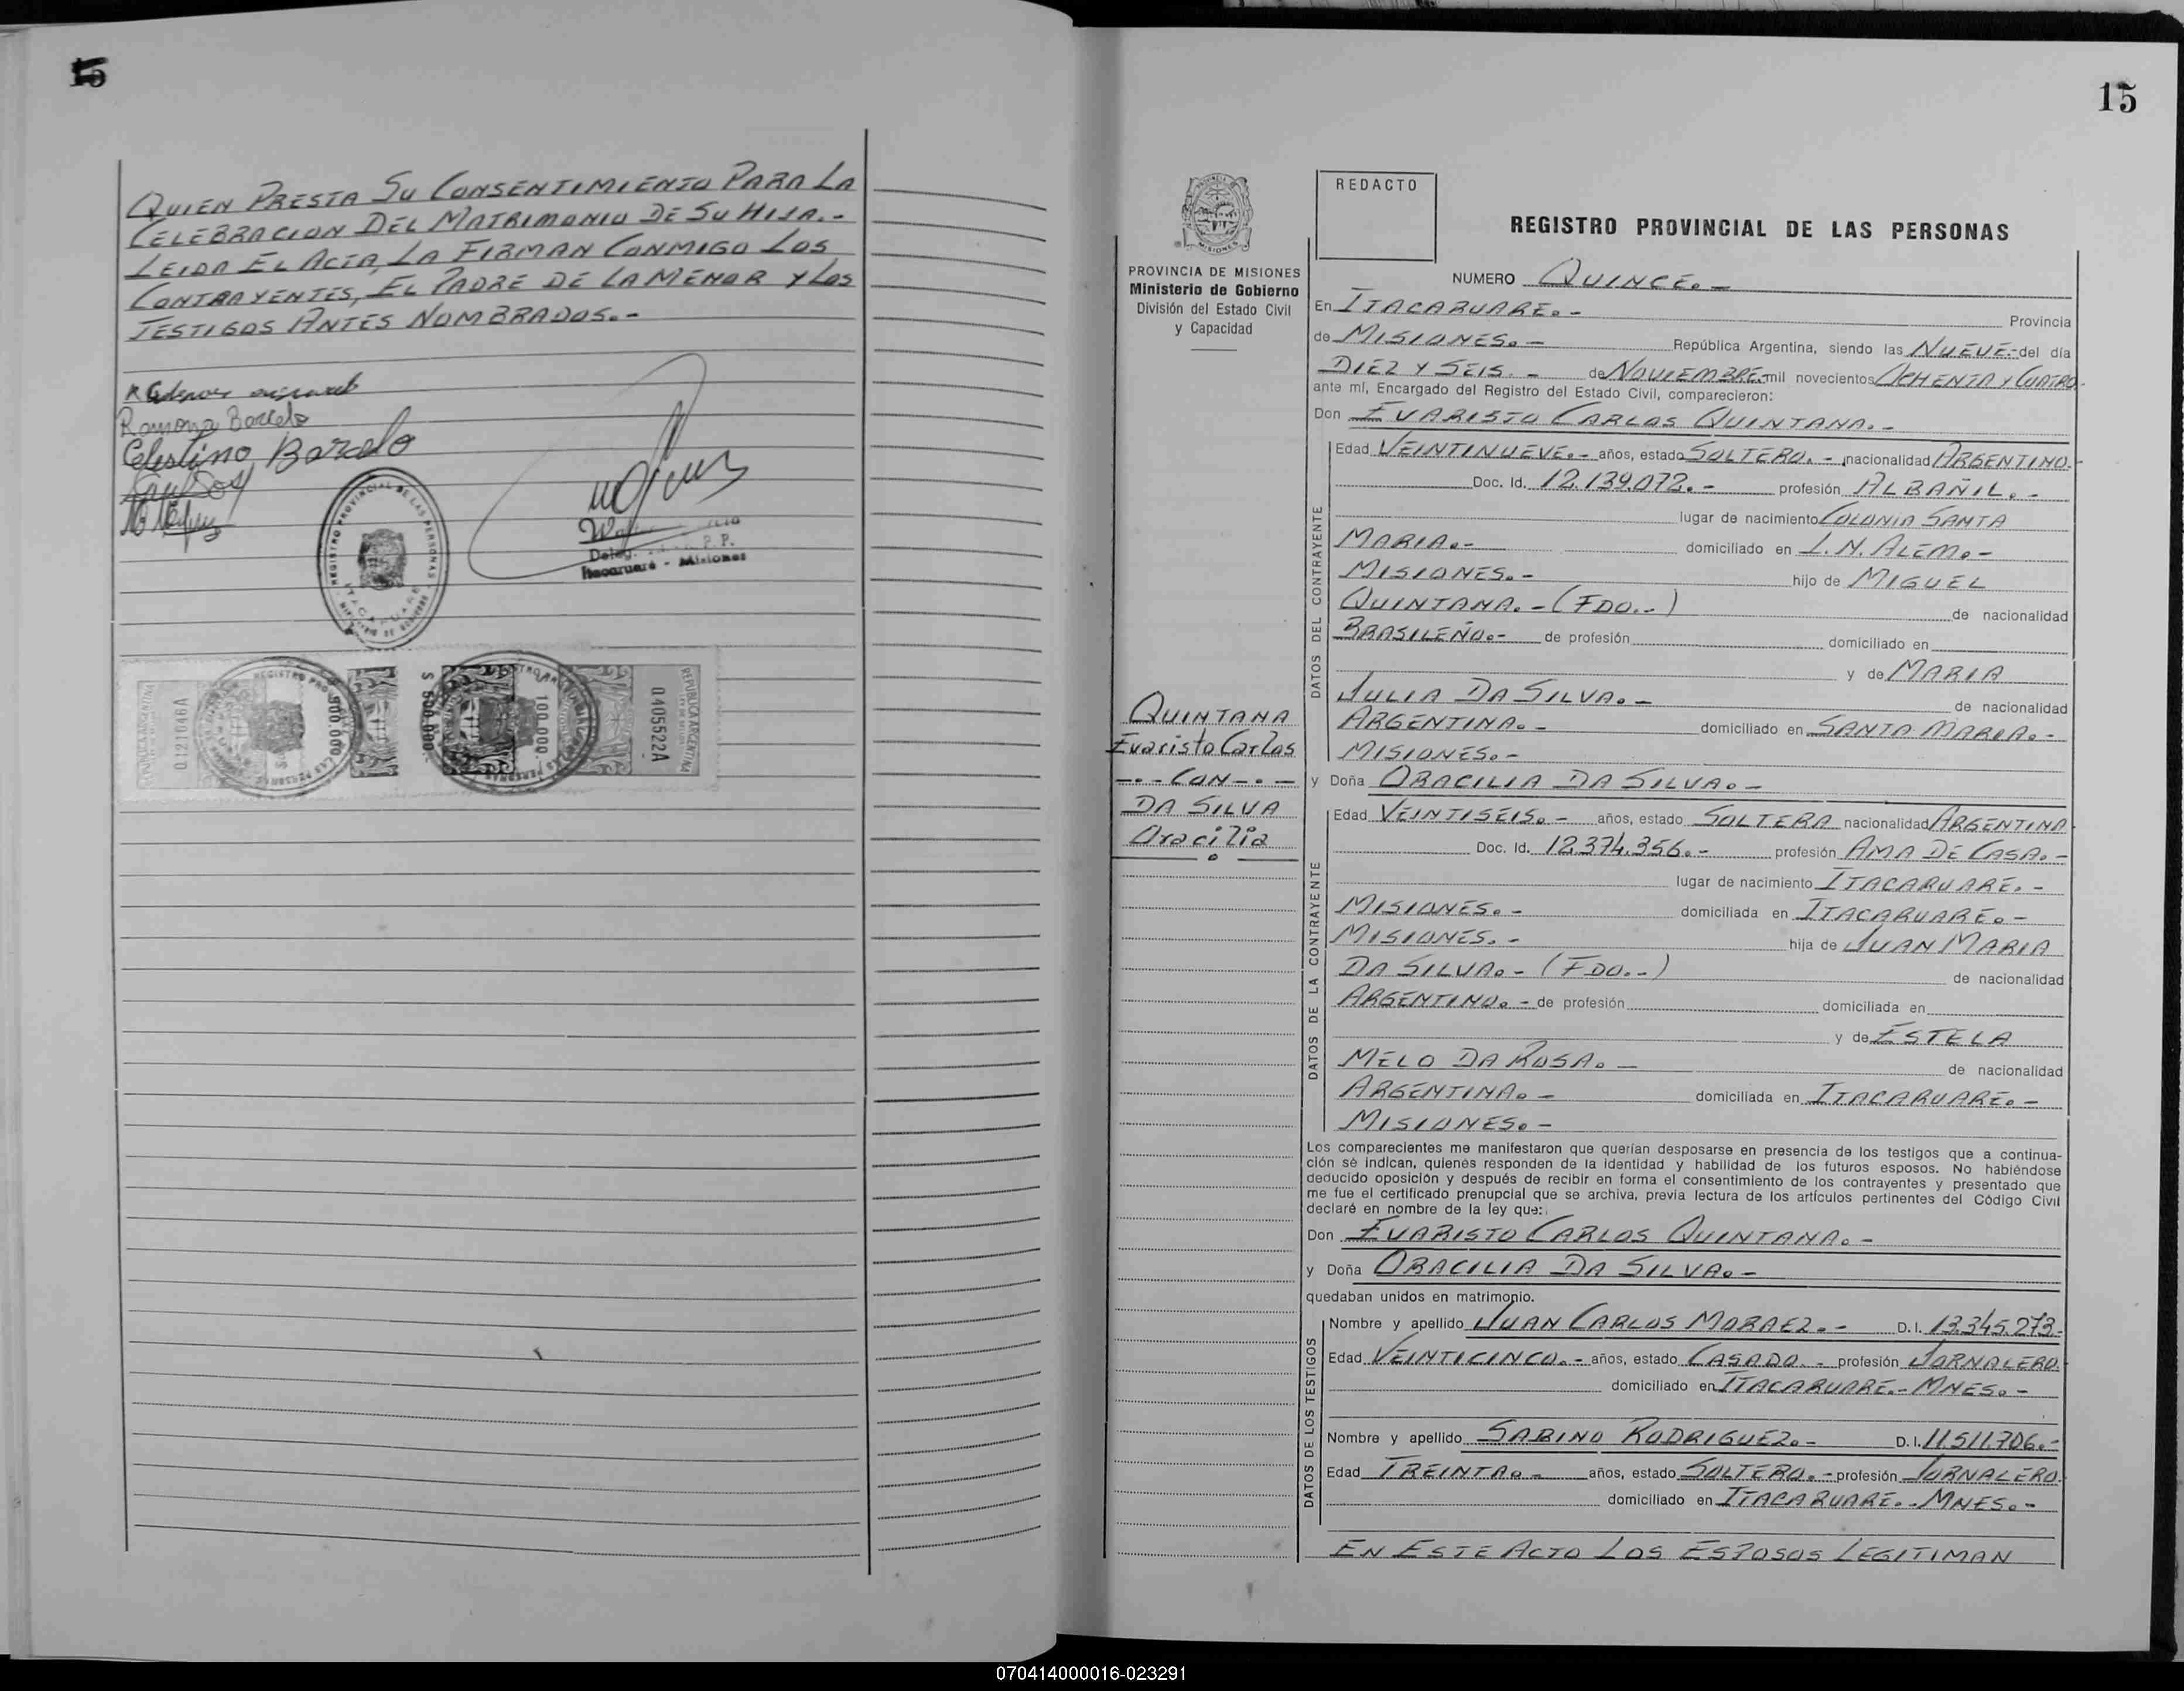 15
QUIEN PRESTA SU CONSENTIMIENTO PARA LA
CELEBRACION DEL MATRIMONIO DE SU HIJA.-
LEIDA EL ACTA, LA FIRMAN CONMIGO LOS
CONTRAYENTES, EL PADRE DE LA MENOR Y LOS
TESTIGOS ANTES NOMBRADOS.-
Ramona Barcelo
Celestino Barcelo
REGISTRO PROVINCIAL DE LAS PERSONAS
Itacaruaré - Misiones
0121046A
500.000
$ 500.000
100.000
0405522A
REPUBLICA ARGENTINA
15
REDACTO
REGISTRO PROVINCIAL DE LAS PERSONAS
PROVINCIA DE MISIONES
Ministerio de Gobierno
División del Estado Civil
y Capacidad
QUINTANA
Evaristo Carlos
-.- CON -.-
DA SILVA
Oracilia
NUMERO QUINCE.-
En ITACARUARE.- Provincia
de MISIONES.- República Argentina, siendo las NUEVE.- del día
DIEZ Y SEIS.- de NOVIEMBRE mil novecientos OCHENTA Y CUATRO.
ante mí, Encargado del Registro del Estado Civil, comparecieron:
Don EVARISTO CARLOS QUINTANA.-
DATOS DEL CONTRAYENTE
Edad VEINTINUEVE.- años, estado SOLTERO.- nacionalidad ARGENTINO.-
Doc. Id. 12.139.072.- profesión ALBAÑIL.-
lugar de nacimiento COLONIA SANTA
MARIA.- domiciliado en L.N. ALEM.-
MISIONES.- hijo de MIGUEL
QUINTANA.- (FDO.-) de nacionalidad
BRASILEÑO.- de profesión domiciliado en
y de MARIA
JULIA DA SILVA.- de nacionalidad
ARGENTINA.- domiciliado en SANTA MARIA.-
MISIONES.-
y Doña ORACILIA DA SILVA.-
DATOS DE LA CONTRAYENTE
Edad VEINTISEIS.- años, estado SOLTERA nacionalidad ARGENTINA.
Doc. Id. 12.374.356.- profesión AMA DE CASA.-
lugar de nacimiento ITACARUARE.-
MISIONES.- domiciliada en ITACARUARE.-
MISIONES.- hija de JUAN MARIA
DA SILVA.- (FDO.-) de nacionalidad
ARGENTINO.- de profesión domiciliada en
y de ESTELA
MELO DA ROSA.- de nacionalidad
ARGENTINA.- domiciliada en ITACARUARE.-
MISIONES.-
Los comparecientes me manifestaron que querían desposarse en presencia de los testigos que a continua-
ción se indican, quienes responden de la identidad y habilidad de los futuros esposos. No habiéndose
deducido oposición y después de recibir en forma el consentimiento de los contrayentes y presentado que
me fue el certificado prenupcial que se archiva, previa lectura de los artículos pertinentes del Código Civil
declaré en nombre de la ley que:
Don EVARISTO CARLOS QUINTANA.-
y Doña ORACILIA DA SILVA.-
quedaban unidos en matrimonio.
DATOS DE LOS TESTIGOS
Nombre y apellido JUAN CARLOS MORAEZ.- D.I. 13.345.273.-
Edad VEINTICINCO.- años, estado CASADO.- profesión JORNALERO.
domiciliado en ITACARUARE.- MNES.-
Nombre y apellido SABINO RODRIGUEZ.- D.I. 11.511.706.-
Edad TREINTA.- años, estado SOLTERO.- profesión JORNALERO.
domiciliado en ITACARUARE.- MNES.-
EN ESTE ACTO LOS ESPOSOS LEGITIMAN
070414000016-023291